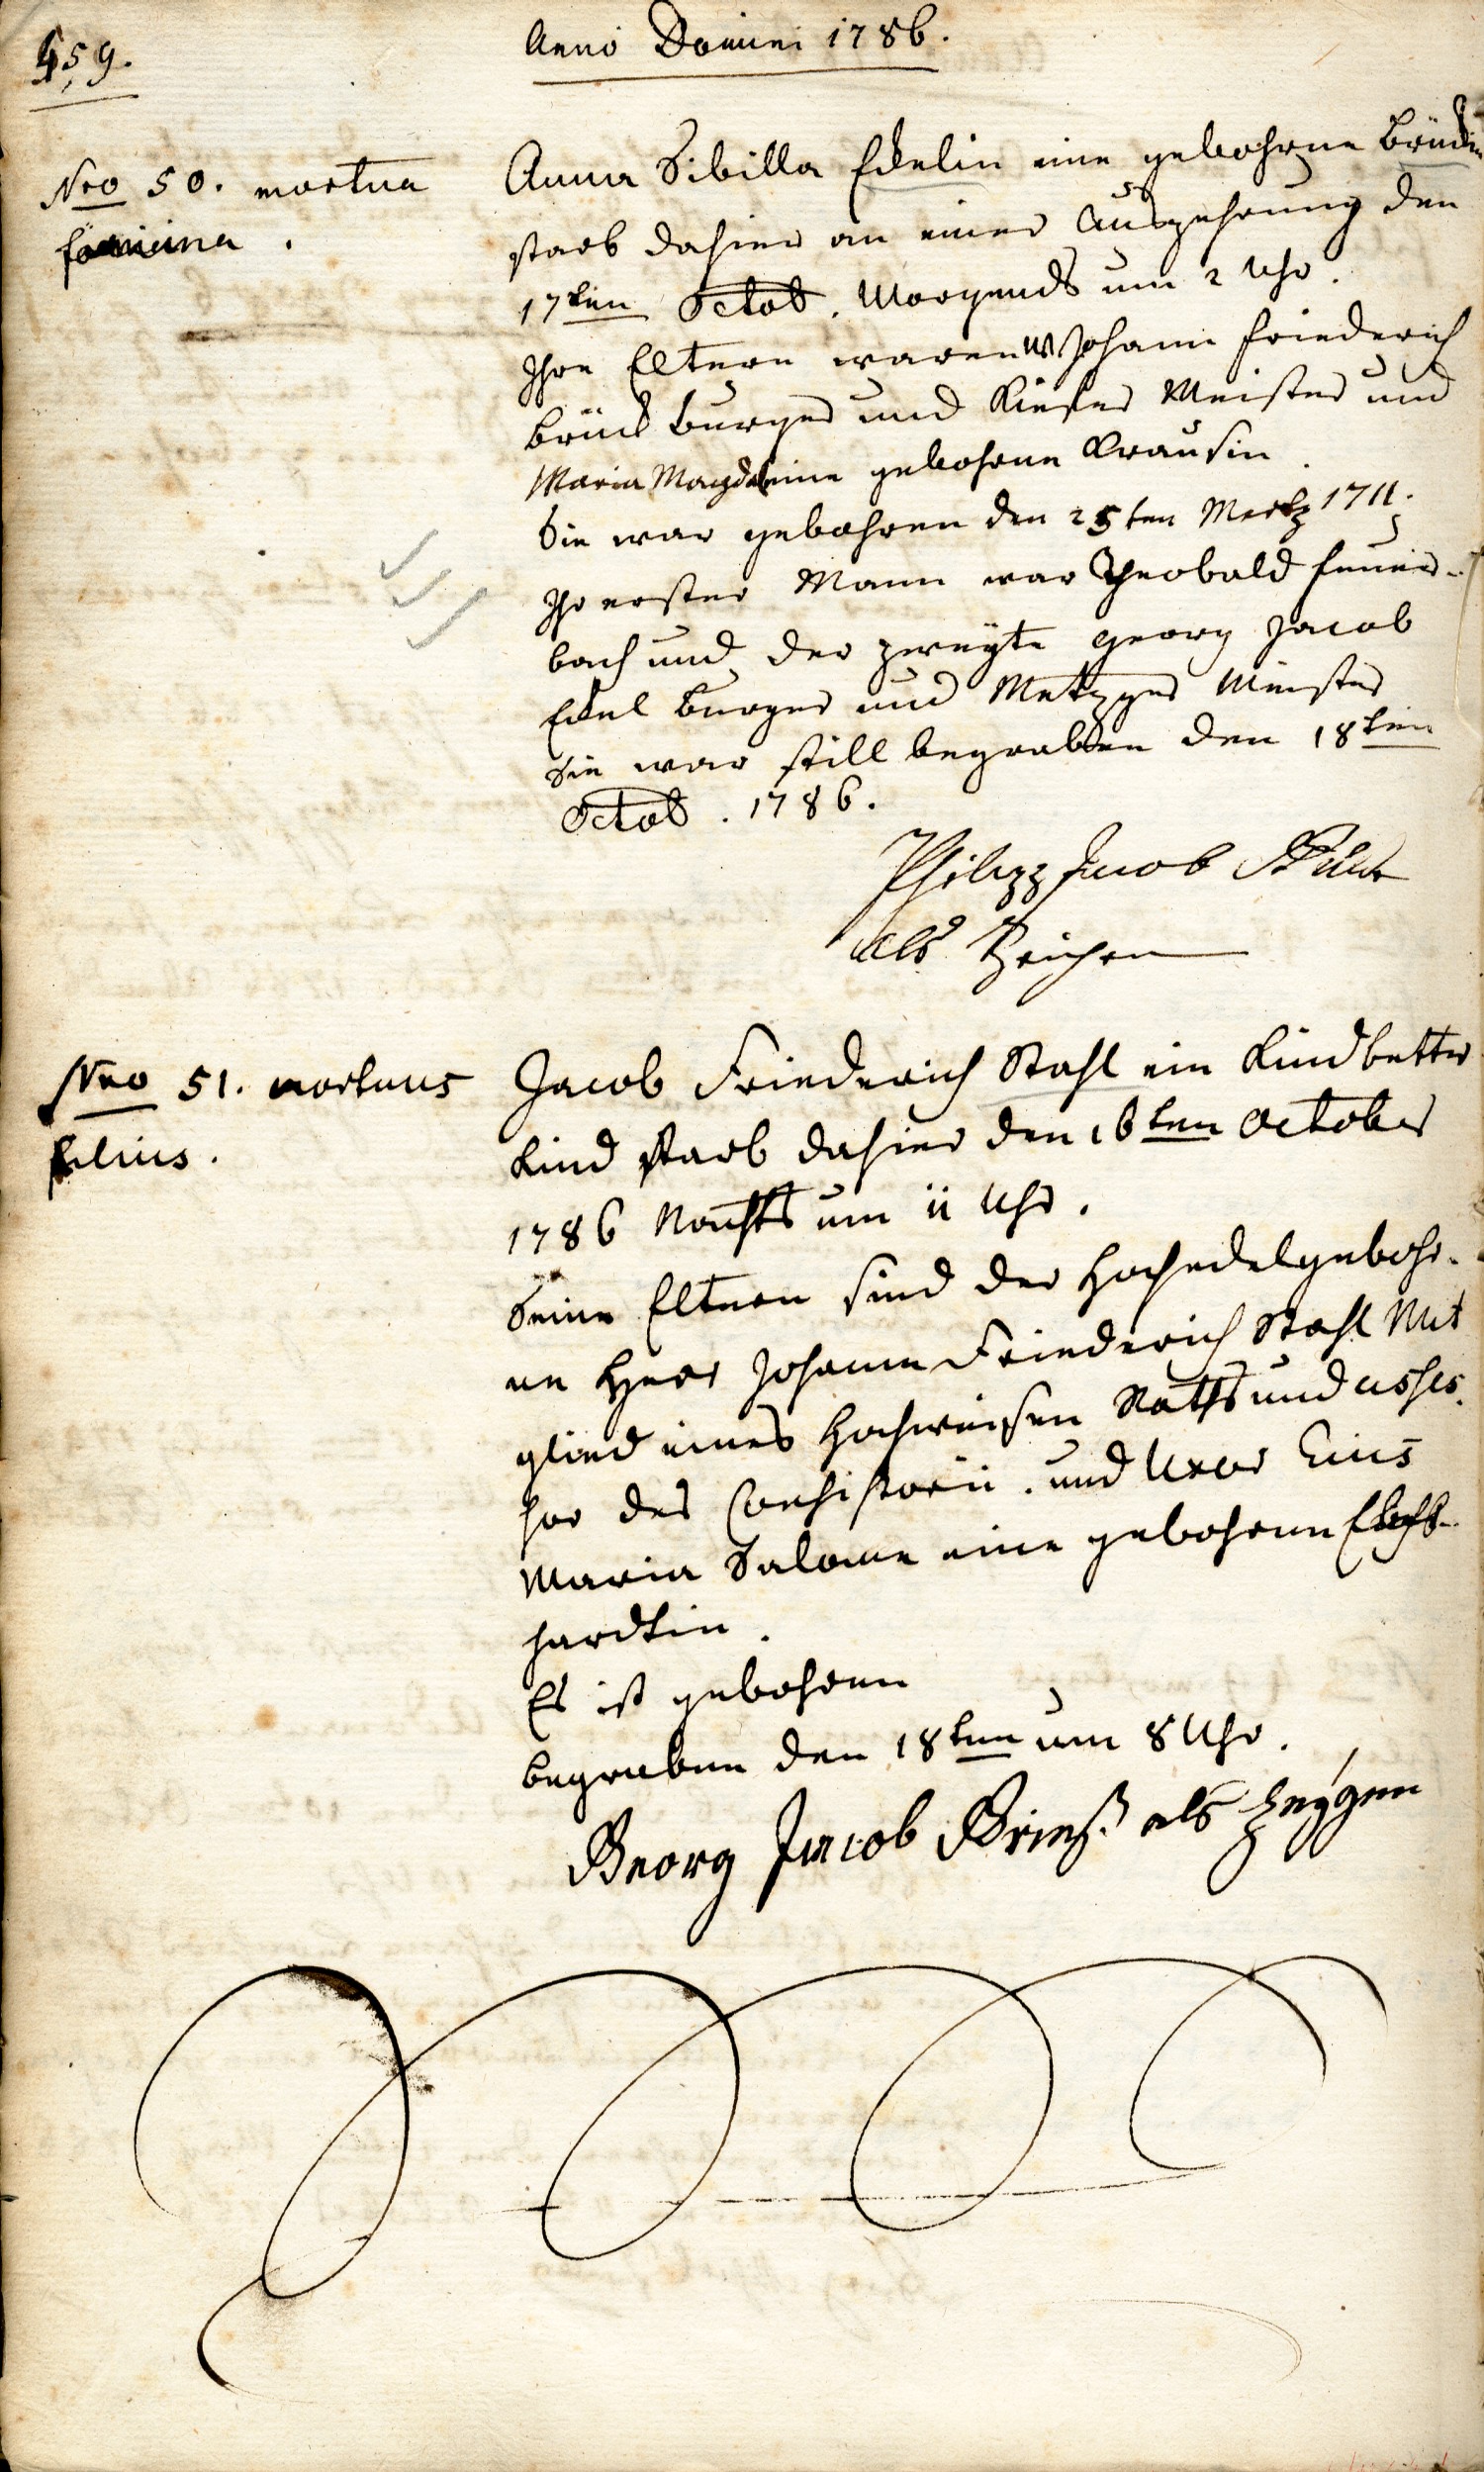 459.
Anno Domini 1786.
Nro 50. mortua
foemina.
Anna Sibilla Eckelin eine gebohrne Brückin
starb dahier an einer Auszehrung den
17ten Octob. Morgends um 2 Uhr.
Ihre Eltern waren Johann Friederich
Brück Burger und Kiefer Meister und
Maria Magdaleine gebohrne Krausin.
Sie war gebohren den 25ten Mertz 1711.
Ihr erster Mann war Theobald Feuer-
bach und der zweyte Georg Jacob
Eckel Burger und Metzger Meister
Sie war still begraben den 18ten
Octob. 1786.
Philipp Jacob
als Zeichen
Nro 51. mortuus
filius.
Jacob Friederich Stahl ein Kindbetter
Kind starb dahier den 16ten October
1786 Nachts um 11 Uhr.
Seine Eltern sind der Hochedelgebohr-
ne Herr Johann Friederich Stahl Mit
glied eines Hochweisen Raths und asses-
sor des Consistorii. und Uxor Eius
Maria Salome eine gebohrne
hardtin.
Es ist gebohren
begraben den 18ten um 8 Uhr.
Georg Jacob Grieß als Zeygen